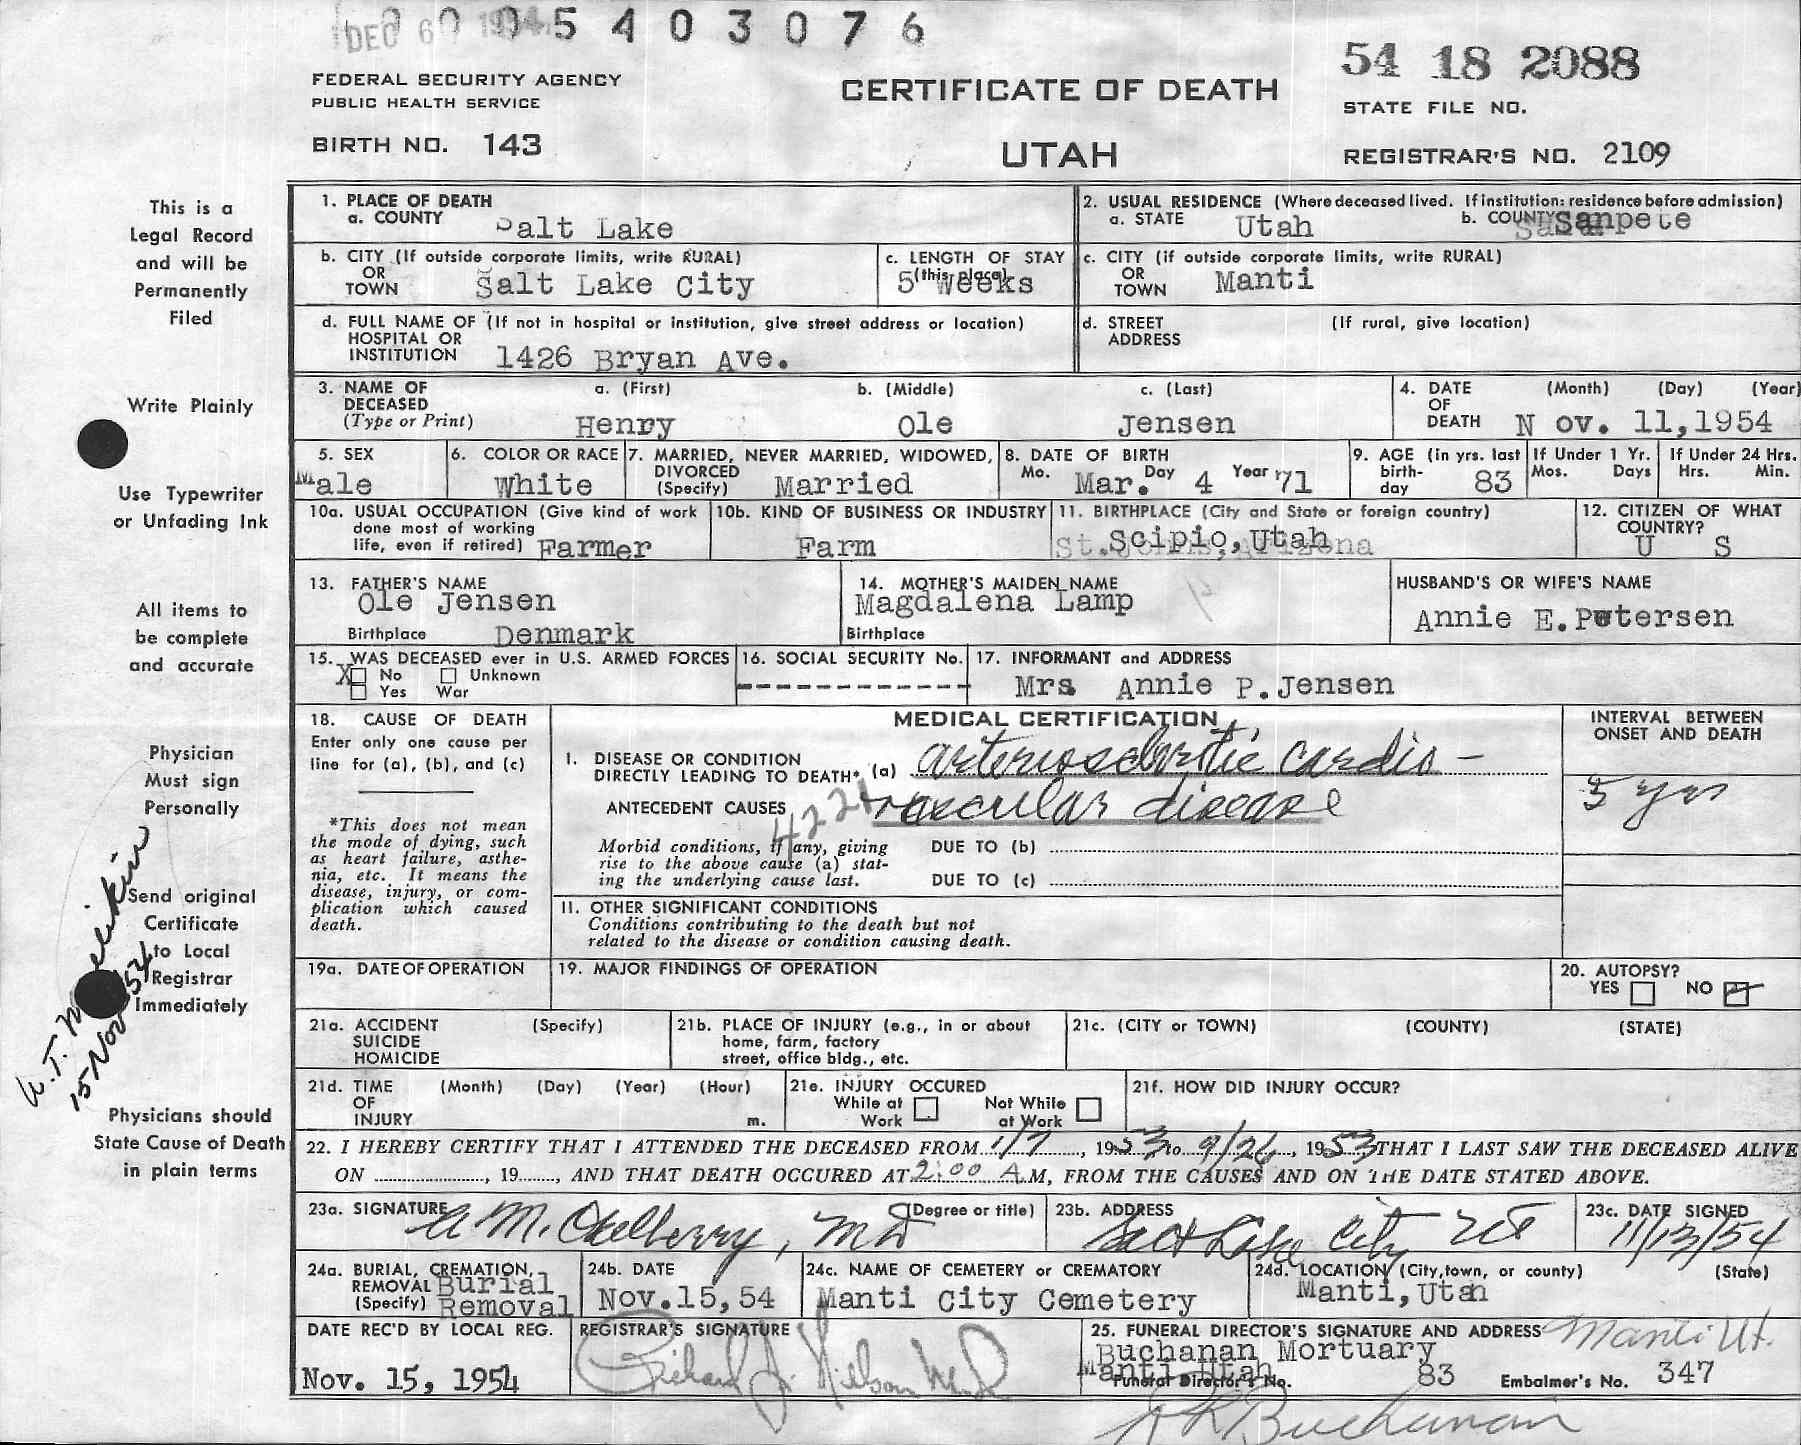 DEC 6 1954
0 0 0 5 4 0 3 0 7 6
54 18 2088
FEDERAL SECURITY AGENCY
PUBLIC HEALTH SERVICE
CERTIFICATE OF DEATH
STATE FILE NO.
BIRTH NO. 143
UTAH
REGISTRAR'S NO. 2109
This is a
Legal Record
and will be
Permanently
Filed
Write Plainly
Use Typewriter
or Unfading Ink
All items to
be complete
and accurate
Physician
Must sign
Personally
Send original
Certificate
to Local
Registrar
Immediately
15 Nov 54
Physicians should
State Cause of Death
in plain terms
1. PLACE OF DEATH
a. COUNTY Salt Lake
2. USUAL RESIDENCE (Where deceased lived. If institution: residence before admission)
a. STATE Utah b. COUNTY Sanpete
b. CITY (If outside corporate limits, write RURAL)
OR
TOWN Salt Lake City
c. LENGTH OF STAY
(this place)
5 Weeks
c. CITY (if outside corporate limits, write RURAL)
OR
TOWN Manti
d. FULL NAME OF (If not in hospital or institution, give street address or location)
HOSPITAL OR
INSTITUTION 1426 Bryan Ave.
d. STREET (If rural, give location)
ADDRESS
3. NAME OF DECEASED (Type or Print)
a. (First) b. (Middle) c. (Last)
Henry Ole Jensen
4. DATE OF DEATH (Month) (Day) (Year)
N ov. 11,1954
5. SEX
Male
6. COLOR OR RACE
White
7. MARRIED, NEVER MARRIED, WIDOWED,
DIVORCED
(Specify) Married
8. DATE OF BIRTH
Mo. Day Year
Mar. 4 '71
9. AGE (in yrs. last
birth-
day 83
If Under 1 Yr.
Mos. Days
If Under 24 Hrs.
Hrs. Min.
10a. USUAL OCCUPATION (Give kind of work
done most of working
life, even if retired) Farmer
10b. KIND OF BUSINESS OR INDUSTRY
Farm
11. BIRTHPLACE (City and State or foreign country)
Scipio, Utah
12. CITIZEN OF WHAT
COUNTRY?
U S
13. FATHER'S NAME
Ole Jensen
Birthplace Denmark
14. MOTHER'S MAIDEN NAME
Magdalena Lamp
Birthplace
HUSBAND'S OR WIFE'S NAME
Annie E. Petersen
15. WAS DECEASED ever in U.S. ARMED FORCES
X No Unknown
Yes War
16. SOCIAL SECURITY No.
------------
17. INFORMANT and ADDRESS
Mrs Annie P. Jensen
18. CAUSE OF DEATH
Enter only one cause per
line for (a), (b), and (c)
*This does not mean
the mode of dying, such
as heart failure, asthe-
nia, etc. It means the
disease, injury, or com-
plication which caused
death.
MEDICAL CERTIFICATION
I. DISEASE OR CONDITION
DIRECTLY LEADING TO DEATH* (a) arteriosclerotic cardio-
ANTECEDENT CAUSES vascular disease
4221
Morbid conditions, if any, giving
rise to the above cause (a) stat-
ing the underlying cause last.
DUE TO (b)
DUE TO (c)
11. OTHER SIGNIFICANT CONDITIONS
Conditions contributing to the death but not
related to the disease or condition causing death.
INTERVAL BETWEEN
ONSET AND DEATH
5 yrs
19a. DATE OF OPERATION
19. MAJOR FINDINGS OF OPERATION
20. AUTOPSY?
YES NO
21a. ACCIDENT (Specify)
SUICIDE
HOMICIDE
21b. PLACE OF INJURY (e.g., in or about
home, farm, factory
street, office bldg., etc.
21c. (CITY or TOWN) (COUNTY) (STATE)
21d. TIME (Month) (Day) (Year) (Hour)
OF
INJURY m.
21e. INJURY OCCURED
While at Work Not While at Work
21f. HOW DID INJURY OCCUR?
22. I HEREBY CERTIFY THAT I ATTENDED THE DECEASED FROM 1/7, 1953 to 9/26, 1953 THAT I LAST SAW THE DECEASED ALIVE
ON ........, 19......, AND THAT DEATH OCCURED AT 2:00 A.M, FROM THE CAUSES AND ON THE DATE STATED ABOVE.
23a. SIGNATURE (Degree or title)
A M. MD
23b. ADDRESS
Salt Lake City Ut
23c. DATE SIGNED
11/13/54
24a. BURIAL, CREMATION,
REMOVAL Burial
(Specify) Removal
24b. DATE
Nov.15,54
24c. NAME OF CEMETERY or CREMATORY
Manti City Cemetery
24d. LOCATION (City,town, or county) (State)
Manti, Utah
DATE REC'D BY LOCAL REG.
Nov. 15, 1954
REGISTRAR'S SIGNATURE
Richard J. Nelson M.D.
25. FUNERAL DIRECTOR'S SIGNATURE AND ADDRESS Manti Ut.
Buchanan Mortuary
Manti Utah
Funeral Director's No. 83 Embalmer's No. 347
Buchanan